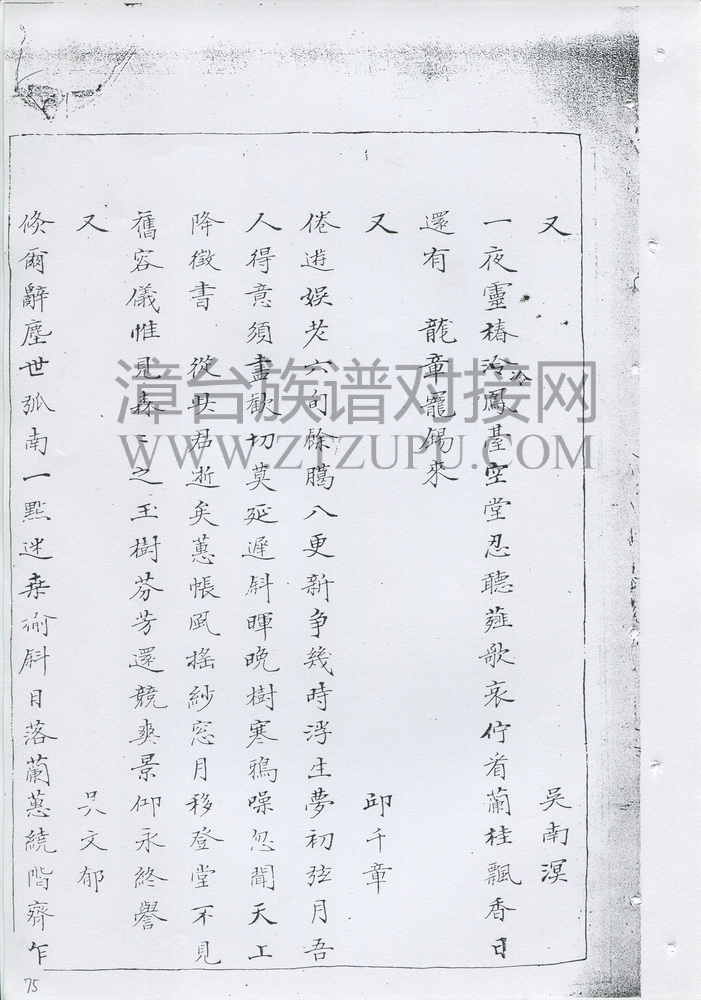 又 吳南溟
一夜靈椿冷冷鳳臺空堂忍聽薤歌哀佇看蘭桂飄香日
還有 龍章寵錫來
又 邱千章
倦遊娛老六旬餘臈八更新爭幾時浮生夢初弦月吾
人得意須盡歡切莫延遲斜暉晚樹寒鴉噪忽聞天上
降徵書 從此君逝矣蕙帳風搖紗窓月移登堂不見
舊容儀惟見森〻之玉樹芬芳還競爽景仰永終譽
又 吳文郁
倐爾辭塵世弧南一點迷桒渝斜日落蘭蕙繞階齊乍
75
漳台族谱对接网
WWW.ZTZUPU.COM